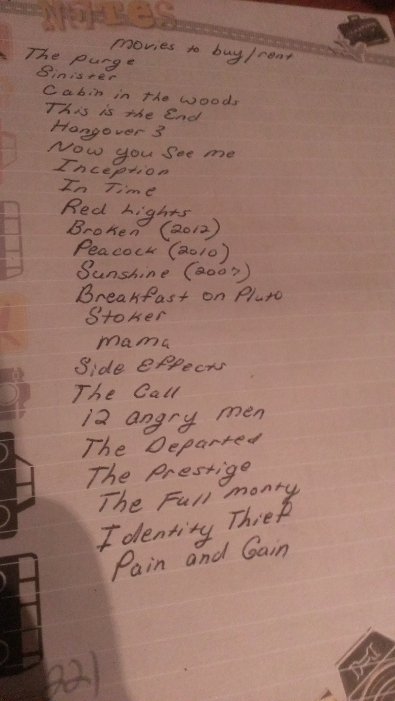 NOTES
movies to buy/rent
The purge
Sinister
Cabin in the woods
This is the End
Hangover 3
Now you See me
Inception
In Time
Red Lights
Broken (2012)
Peacock (2010)
Sunshine (2007)
Breakfast on Pluto
Stoker
mama
Side Effects
The Call
12 angry men
The Departed
The Prestige
The Full monty
Identity Thief
Pain and Gain
22)